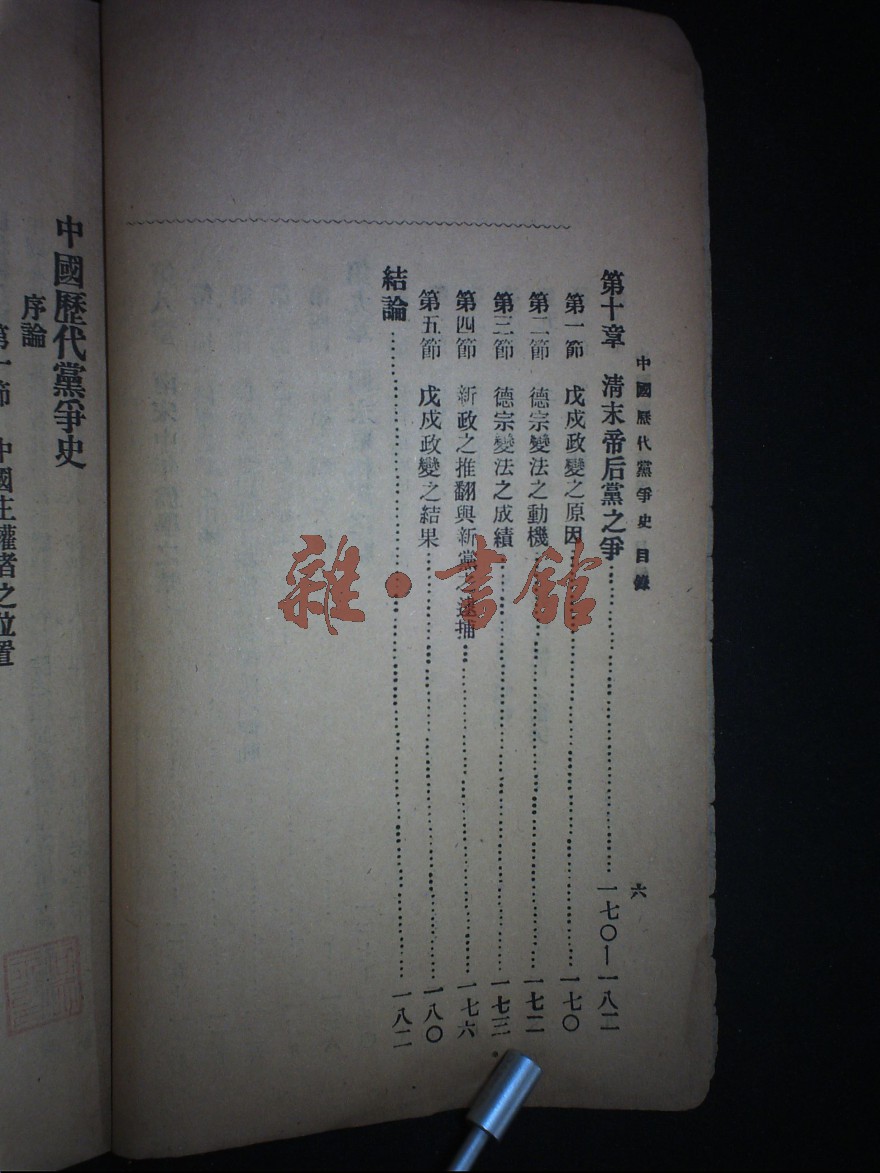 中國歷代黨爭史 目錄
六
第十章 淸末帝后黨之爭……一七〇—一八二
第一節 戊戌政變之原因……一七〇
第二節 德宗變法之動機……一七二
第三節 德宗變法之成績……一七三
第四節 新政之推翻與新黨之逮捕……一七六
第五節 戊戌政變之結果……一八〇
結論……一八二
中國歷代黨爭史
序論
第一節 中國主權者之位置
雜·書館